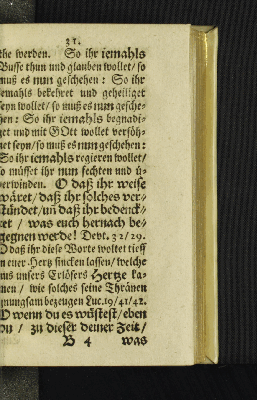 31.
the werden. So ihr iemahls
Busse thun und glauben wollet/ so
muß es nun geschehen: So ihr
iemahls bekehret und geheiliget
seyn wollet/ so muß es nun gesche-
hen: So ihr iemahls begnadi-
get und mit GOtt wollet versöh-
net seyn/ so muß es nun geschehen:
So ihr iemahls regieren wollet/
so müsset ihr nun fechten und ü-
berwinden. O daß ihr weise
wäret/ daß ihr solches ver-
stündet/ uñ daß ihr bedenck-
et / was euch hernach be-
gegnen werde! Deut. 32/29.
O daß ihr diese Worte woltet tieff
in euer Hertz sincken lassen/ welche
aus unsers Erlösers Hertze ka-
men / wie solches seine Thränen
gnungsam bezeugen Luc. 19/41/42.
O wenn du es wüstest/ eben
du / zu dieser deiner Zeit/
B 4 was